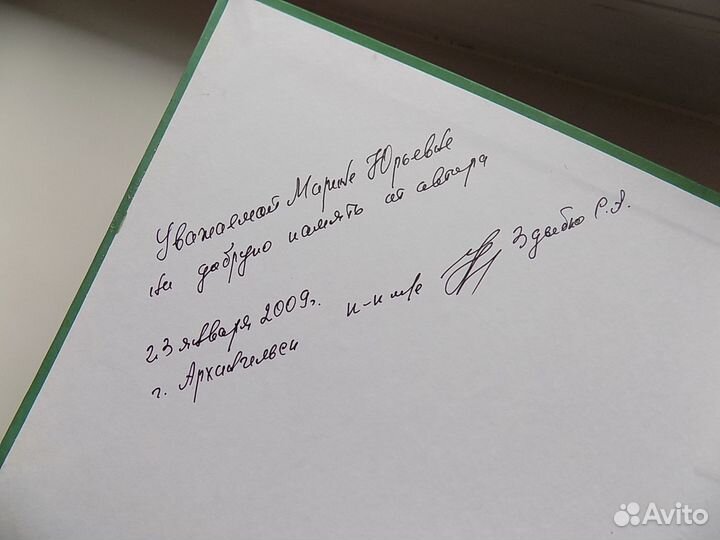 Уважаемой Марине Юрьевне
на добрую память от автора
23 января 2009г. п-п-к Здыбко С.А.
г. Архангельск
Avito